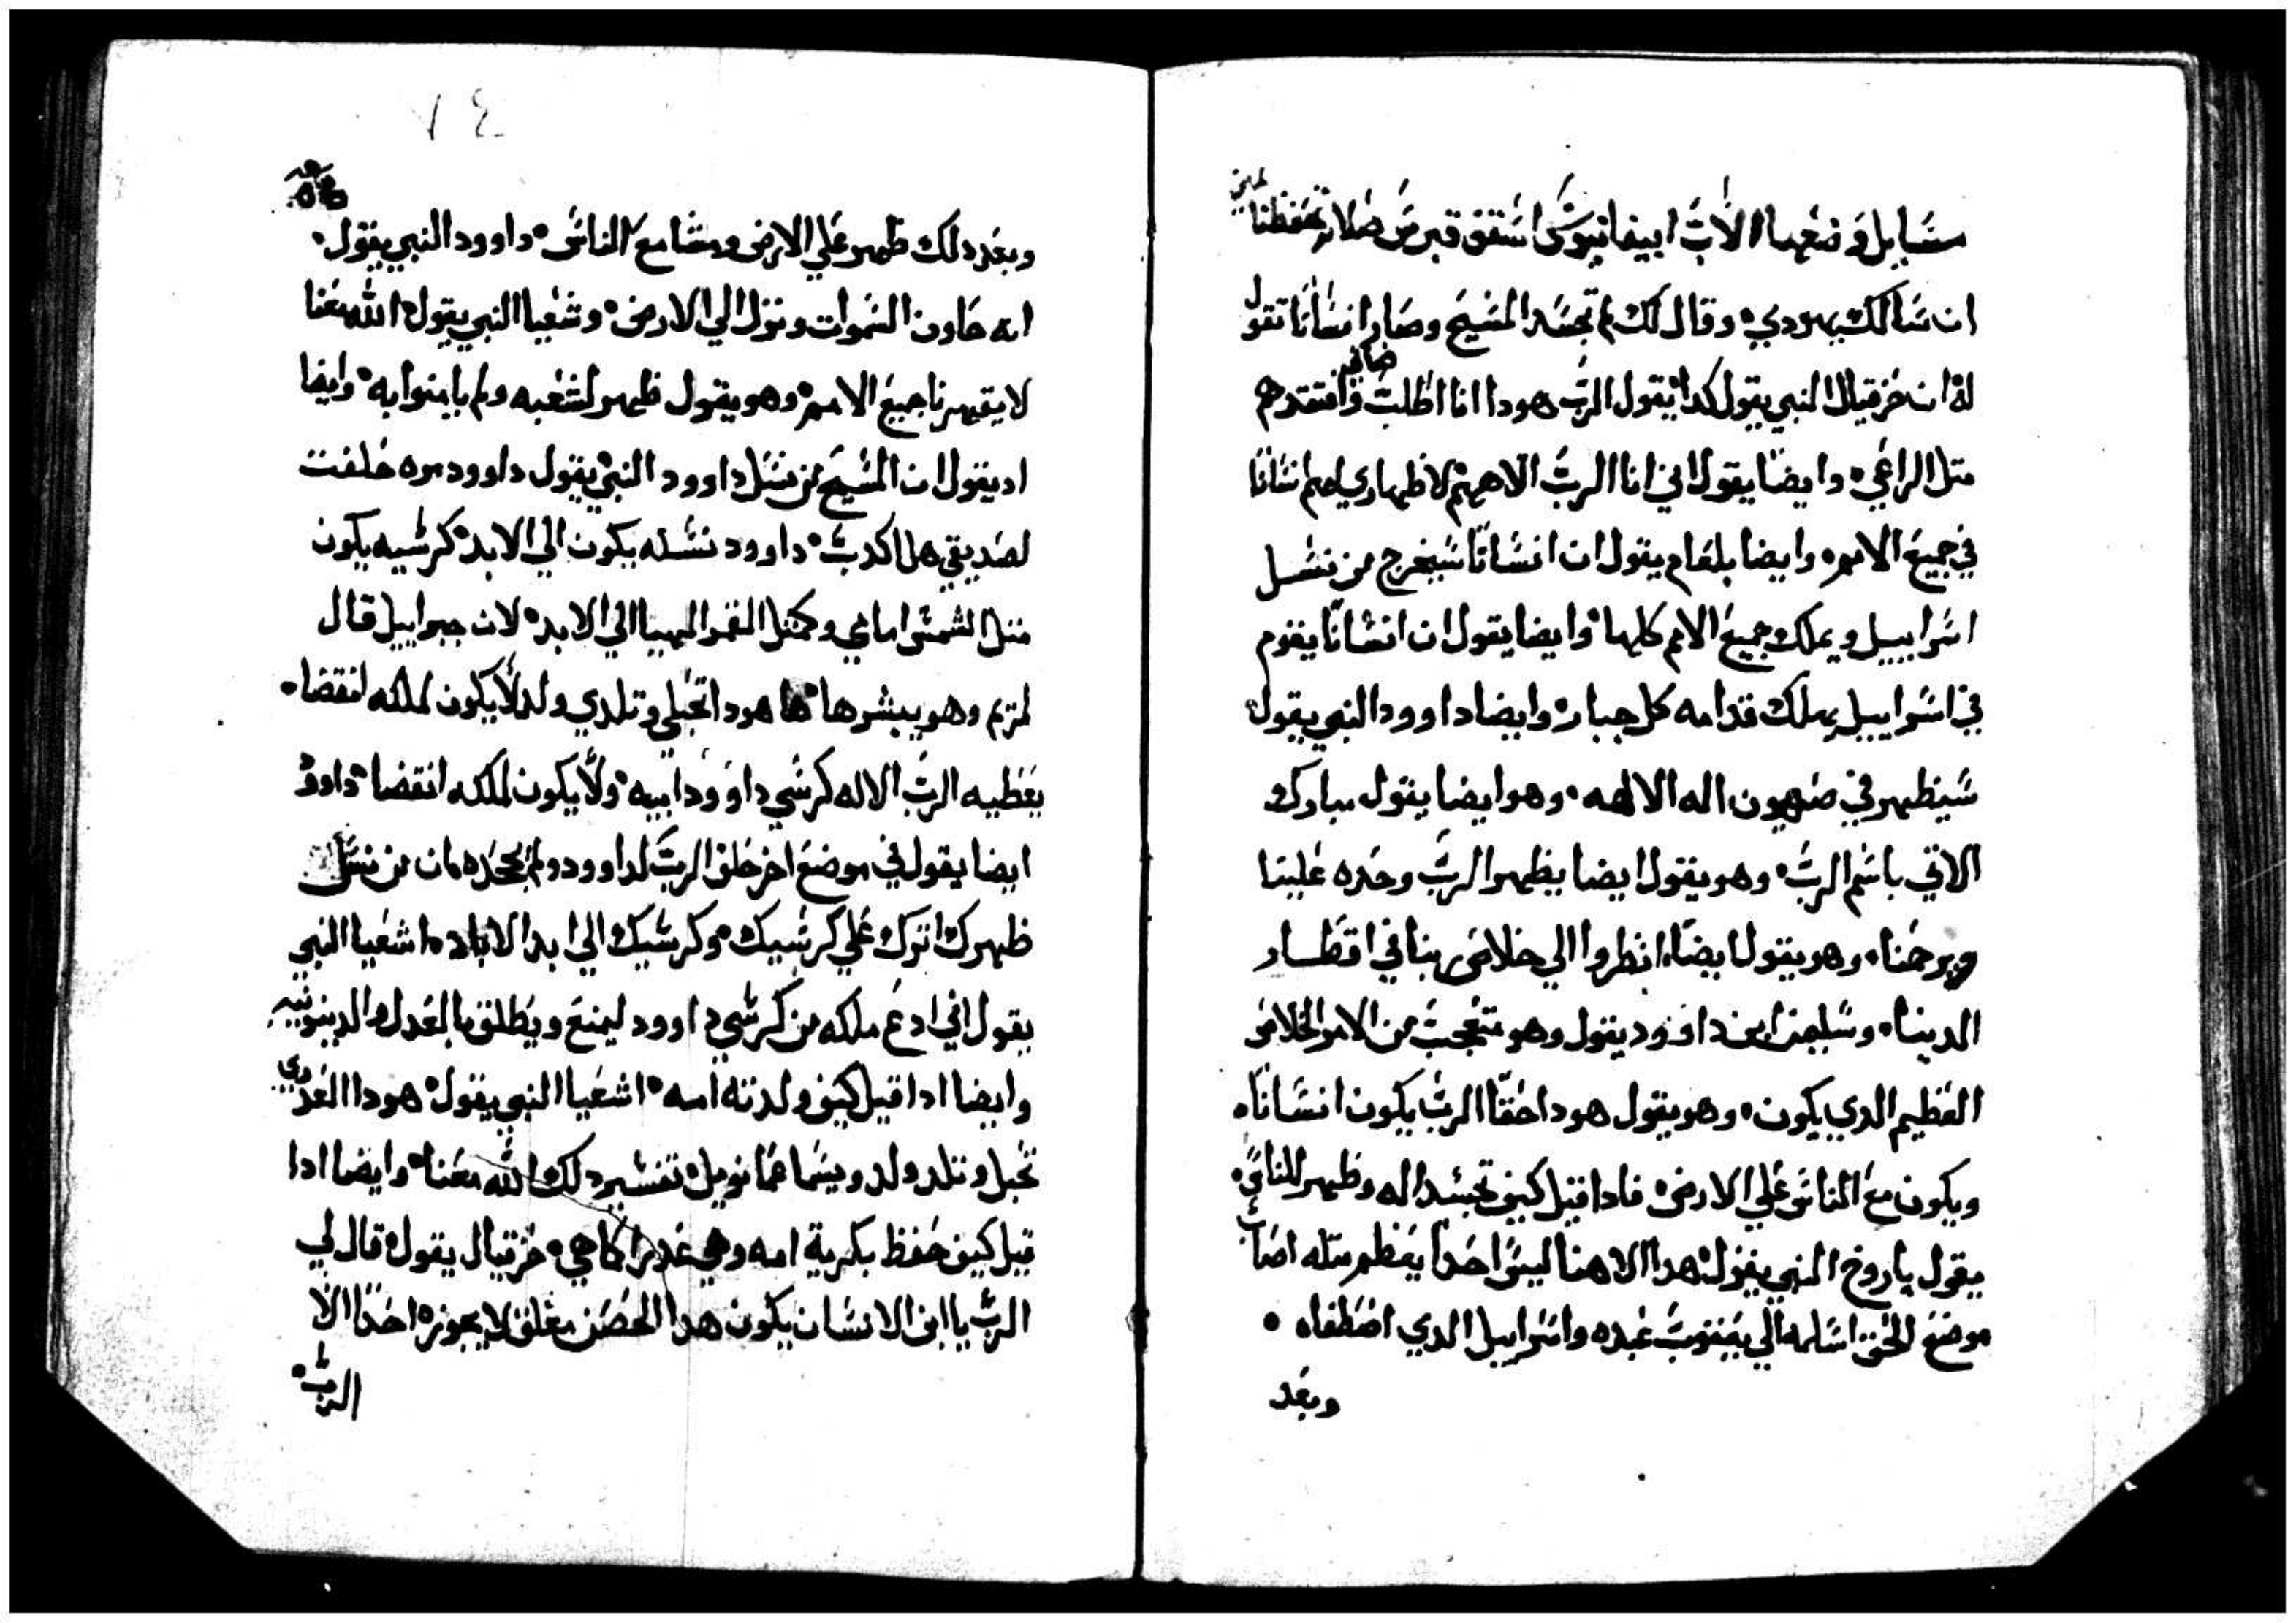 مسايل وضعها الاب ابيفانيوس اسقف قبرس صلاته تحفظنا امين
ان سالك يهودي وقال لك لم تجسد المسيح وصار انسانا تقول
له ان حزقيال النبي يقول كدا يقول الرب هودا انا اطلب وافتقدهم
متل الراعي وايضا يقول اني انا الرب الاههم لاظهاري لهم انسانا
في جميع الامم وايضا بلعام يقول ان انسانا سيخرج من نسل
اسراييل ويملك جميع الامم كلها وايضا يقول ان انسانا يقوم
في اسراييل يهلك قدامه كل جبار وايضا داوود النبي يقول
سيظهر في صهيون اله الالهه وهو ايضا يقول مبارك
الاتي باسم الرب وهو يقول ايضا يظهر الرب وحده علينا
ويرحمنا وهو يقول ايضا انظروا الي خلاص ربنا في اقطار
الدينا وسليمن ابن داوود يقول وهو متعجب من الامر الخلاص
العظيم الدي يكون وهو يقول هودا حقا الرب يكون انسانا
ويكون مع الناس علي الارض فادا قيل كيف تجسد اله وظهر للناس
يقول باروخ النبي يقول هدا الاهنا ليس احدا يعظم متله اصاب
موضع الحق اسلمه الي يعقوب عبده واسراييل الدي اصطفاه
وبعد
٧٤
وبعد دلك ظهر علي الارض ومشا مع الناس داوود النبي يقول
انه طاون السموات ونزل الي الارض وشعيا النبي يقول الله معنا
لا يقهرنا جميع الامم وهو يقول ظهر لشعبه ولم يامنوا به وايضا
اد يقول ان المسيح من نسل داوود النبي يقول داوود مره حلفت
لصديقي هل اكدب داوود نسله يكون الي الابد كرسيه يكون
متل الشمس امامي وكمتل القمر المهيا الي الابد لان جبراييل قال
لمريم وهو يبشرها ها هودا تحبلي وتلدي ولد لا يكون لملكه انقضا
يعطيه الرب الاله كرسي داوود ابيه ولا يكون لملكه انقضا داود
ايضا يقول في موضع اخر حلف الرب لداوود ولم يجحده مان من نسل
ظهرك اترك علي كرسيك وكرسيك الي ابد الاباد اشعيا النبي
يقول اني ادع ملكه من كرسي داوود ليمنع ويطلق بالعدل والدينونيه
وايضا ادا قيل كيف ولدته امه اشعيا النبي يقول هودا العدري
تحبل وتلد ولد ويسما عمانويل تفسير دلك الله معنا وايضا ادا
قيل كيف حفظ بكرية امه وهي عدرا كما هي حزقيال يقول قال لي
الرب يا ابن الانسان يكون هدا الحصن مغلق لا يجوزه احدا الا
الرب